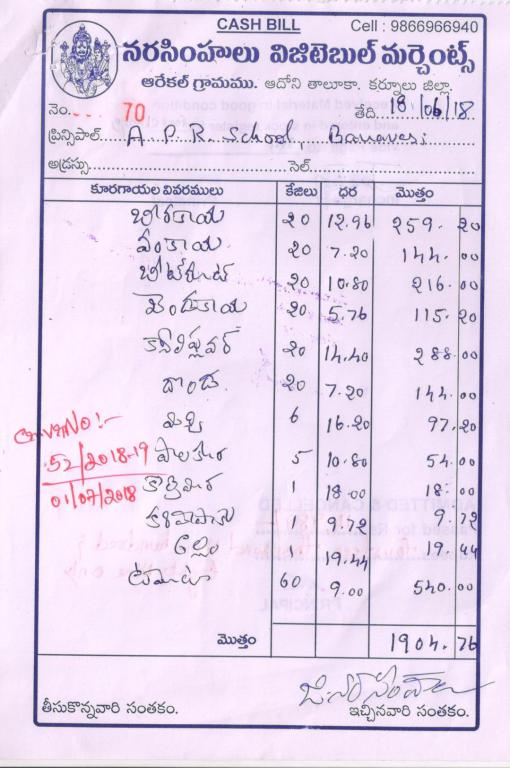 CASH BILL Cell : 9866966940
నరసింహులు విజిటెబుల్ మర్చెంట్స్
ఆరేకల్ గ్రామము. ఆదోని తాలూకా. కర్నూలు జిల్లా.
నెం. 70 తేది 18/06/18
ప్రిన్సిపాల్ A. P. R. School, Banavasi
అడ్రస్సు సెల్
కూరగాయల వివరములు కేజిలు ధర మొత్తం
బీరకాయ 20 12.96 259.20
వంకాయ 20 7.20 144.00
బీట్‌రూట్ 20 10.80 216.00
బెండకాయ 20 5.76 115.20
కాలీఫ్లవర్ 20 14.40 288.00
దొండ 20 7.20 144.00
మిర్చి 6 16.20 97.20
పాలకూర 5 10.80 54.00
కొత్తిమీర 1 18.00 18.00
కరివేపాకు 1 9.72 9.72
అల్లం 1 19.44 19.44
టమాట 60 9.00 540.00
NO:-
52/2018-19
01/07/2018
మొత్తం 1904.76
తీసుకొన్నవారి సంతకం. ఇచ్చినవారి సంతకం.